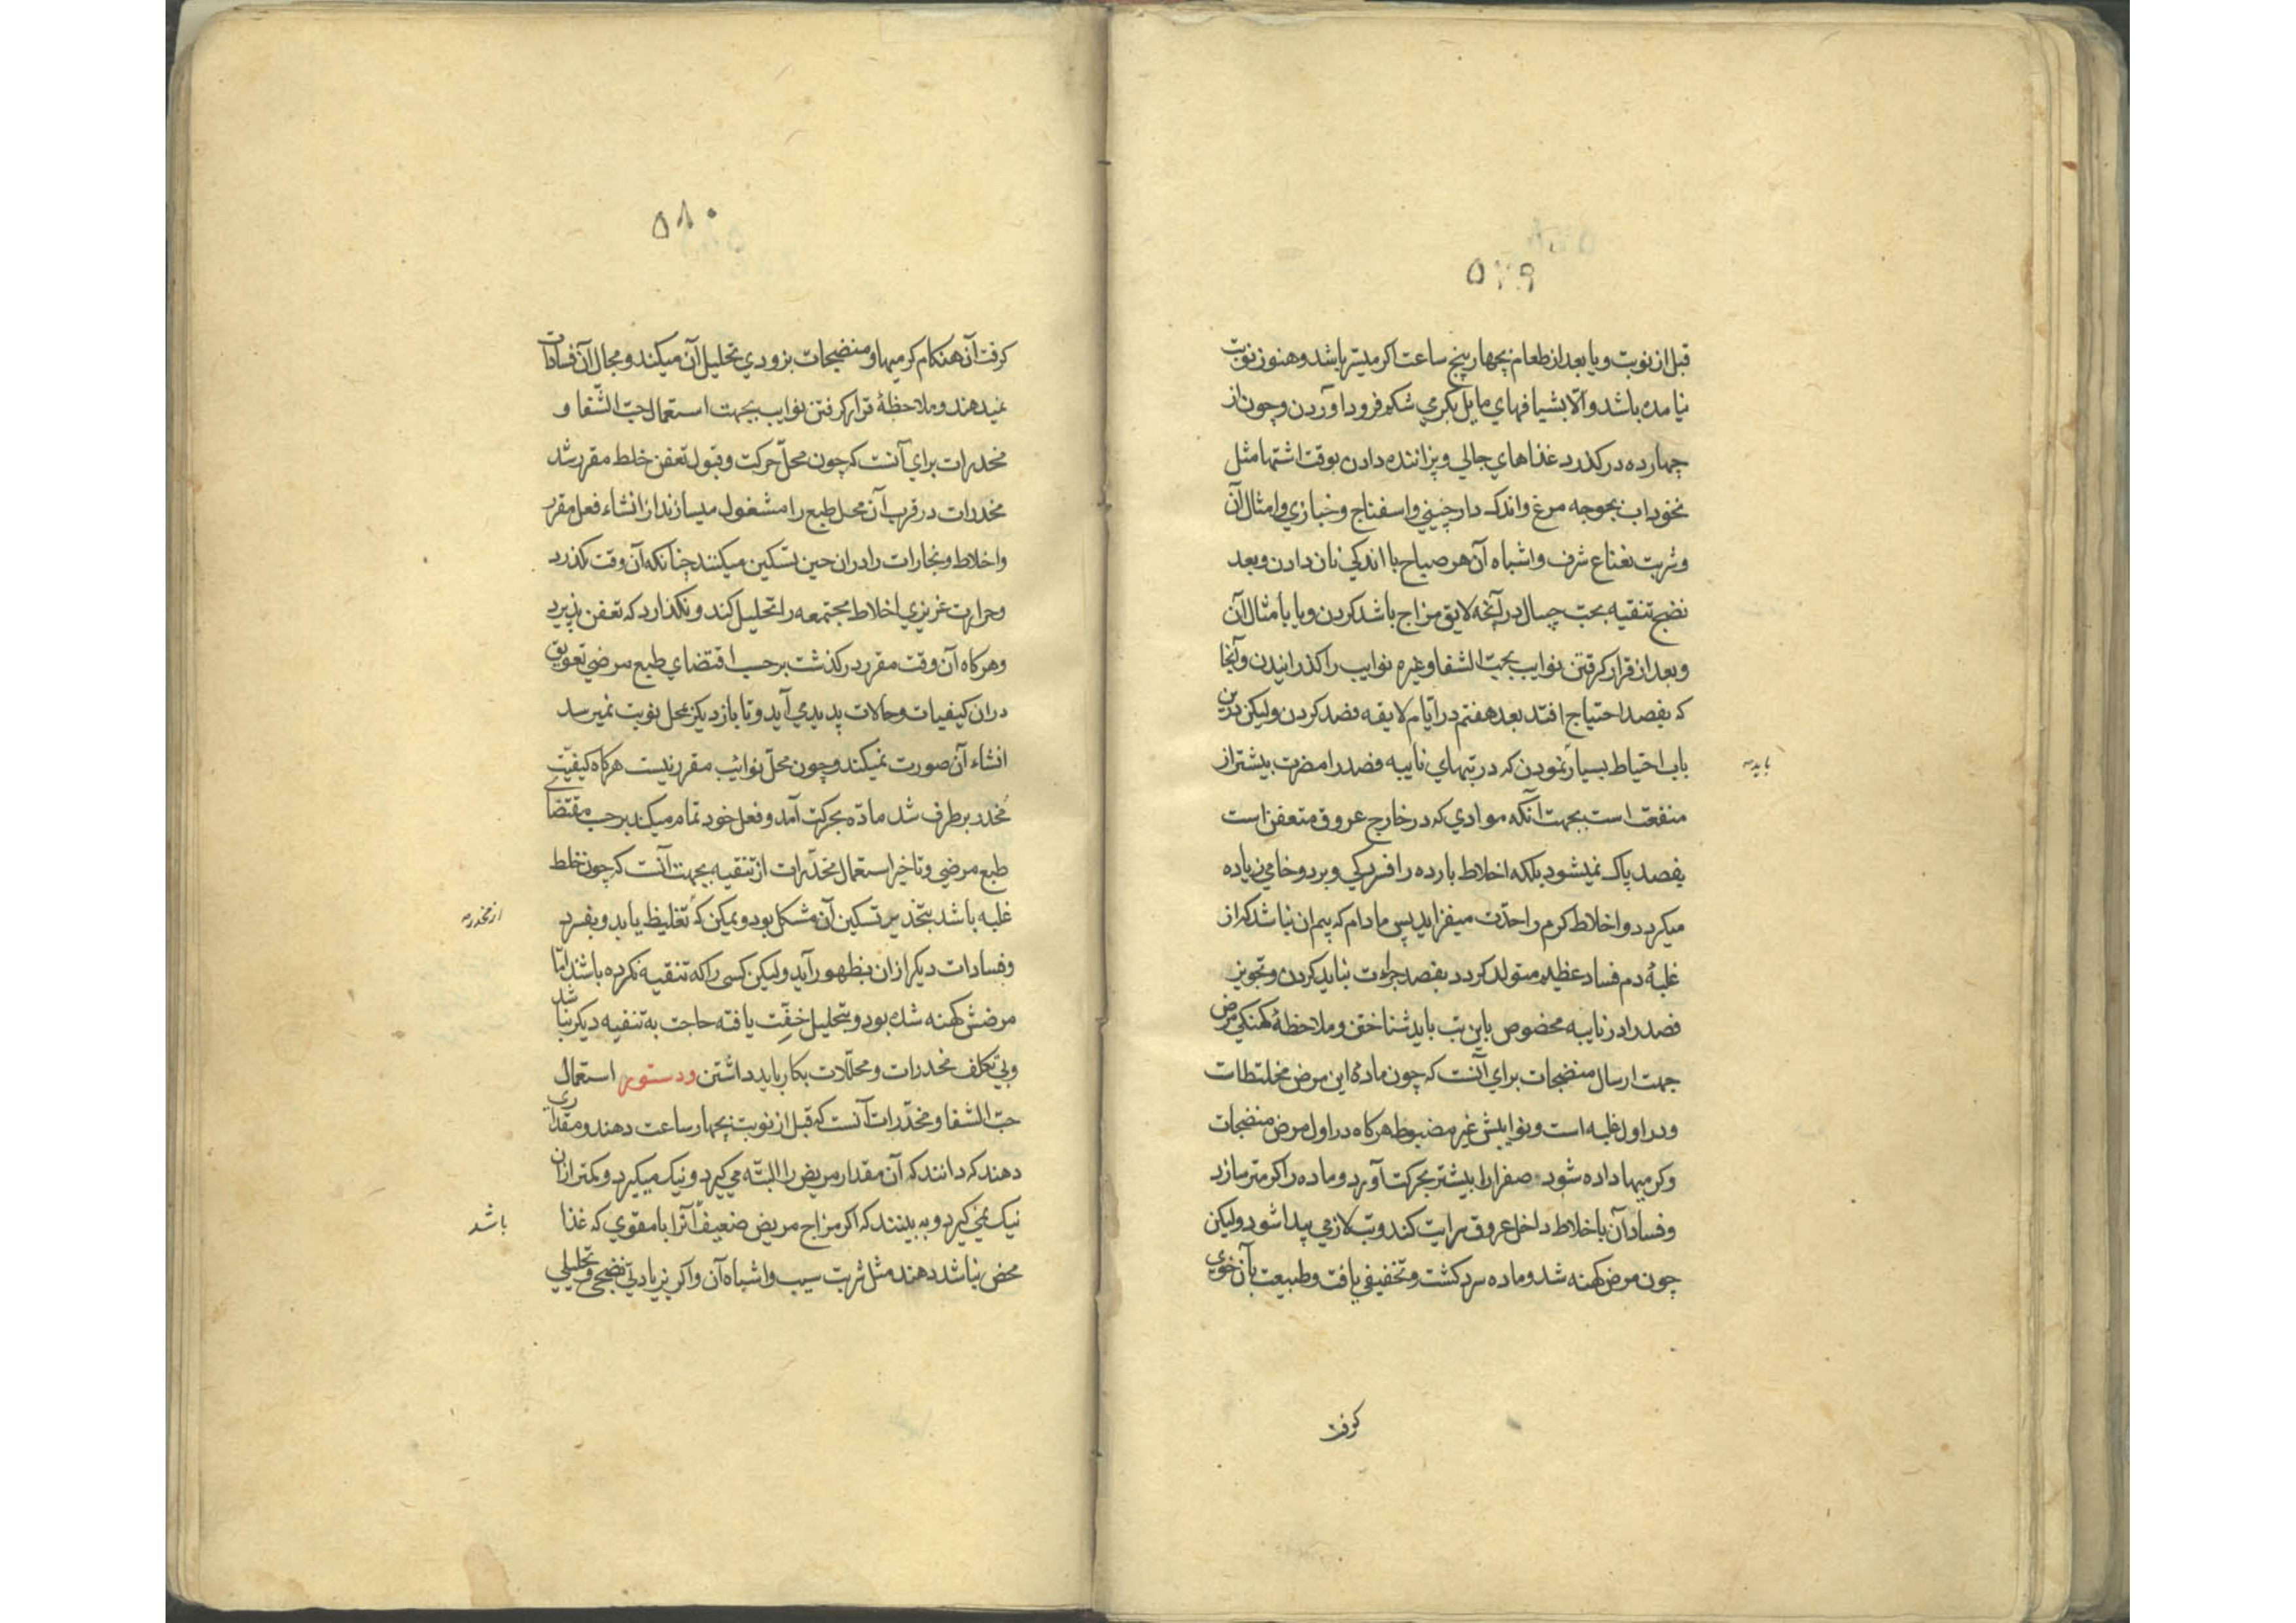 ۵۷۹
قبل از نوبت و یا بعد از طعام بچهار پنج ساعت اکر میسّر باشد و هنوز نوبت
نیامده باشد و الّا بشیافهای مایل بکرمی شکم فرود آوردن و چون از
چهارده درکذرد غذاهای جالی و پزاننده دادن بوقت اشتها مثل
نخوداب بجوجه مرغ و اندک دارچینی و اسفناج و خبازی و امثال آن
و شربت نعناع شرف و اشباه آن هر صباح با اندکی نان دادن و بعد
نضج تنقیه بحبّ چسال در آنچه لایق مزاج باشد کردن و یا بامثال آن
و بعد از قرار کرفتن نوایب بحبّ الشفا و غیره نوایب را کذرانیدن و آنجا
که بفصد احتیاج افتد بعد هفتم در ایّام لایقه فصد کردن و لیکن درین
باب احتیاط بسیار نمودن که در تبهای نایبه فصد را مضرت بیشتر از
بایدمه
منفعت است بجهت آنکه موادی که در خارج عروق متعفن است
بفصد پاک نمیشود بلکه اخلاط بارده را فسردکی و برد و خامی زیاده
میکردد و اخلاط کرم را حدّت میفزاید پس مادام که بیم ان نباشد که از
غلبهٔ دم فساد عظیم متولد کردد بفصد جراءت نباید کردن و تجویز
فصد را در نایبه مخصوص باین تب باید شناختن و ملاحظهٔ کهنکی مرض
جهت ارسال منضجات برای آنست که چون مادهٔ این مرض مختلطات
و در اول غلبه است و نوایبش غیر مضبوط هرکاه در اول مرض منضجات
و کرمیها داده شود صفرا را بیشتر بحرکت آورد و ماده را کرمتر سازد
و فساد آن باخلاط داخل عروق سرایت کند و تب لازمی پیدا شود و لیکن
چون مرض کهنه شد و ماده سرد کشت و تخفیفی یافت و طبیعت بآن خوی
کرفت
۵۸۰
کرفت آن هنکام کرمیها و منضجات بزودی تحلیل آن میکند و مجال آن فسادات
نمیدهند و ملاحظهٔ قرار کرفتن نوایب بجهت استعمال حبّ الشّفا و
مخدرات برای آنست که چون محلّ حرکت و قبول تعفن خلط مقرر شد
مخدرات در قرب آن محل طبع را مشغول میسازند از انشاء فعل مقرر
و اخلاط و بخارات را در ان حین تسکین میکنند چنانکه آن وقت بکذرد
و حرارت غریزی اخلاط مجتمعه را تحلیل کند و نکذارد که تعفن پذیرد
و هرکاه آن وقت مقرر درکذشت برحسب اقتضای طبع مرضی تعویق
در ان کیفیات و حالات پدید می آید و تا باز دیکر بمحل نوبت نمیرسد
انشاء آن صورت نمیکند و چون محلّ نوائب مقرر نیست هرکاه کیفیّت
مُخدر برطرف شد مادّه بحرکت آمد و فعل خود تمام میکند برحسب مقتضای
طبع مرضی و تاخیر استعمال مخدّرات از تنقیه بجهت آنست که چون خلط
غلبه باشد بتخدیر تسکین آن مشکل بود و یمکن که تغلیظ یابد و بفسرد
از مخدرمه
و فسادات دیکر از ان بظهور آید و لیکن کسی را که تنقیه نکرده باشند امّا
مرضش کهنه شده بود و بتحلیل خفّت یافته حاجت به تنقیه دیکر نباشد
و بی تکلف مخدرات و محلّلات بکار باید داشتن و دستور استعمال
حبّ الشفا و مخدّرات آنست که قبل از نوبت بچهار ساعت دهند و مقداری
دهند که دانند که آن مقدار مریض را البتّه می کیرد و نیک میکیرد و کمتر از ان
نیک نمی کیرد و به بینند که اکر مزاج مریض ضعیف آنرا با مقوی که غذا
باشد
محض نباشد دهند مثل شربت سیب و اشباه آن و اکر بزیادتی نضجی و تحلیلی